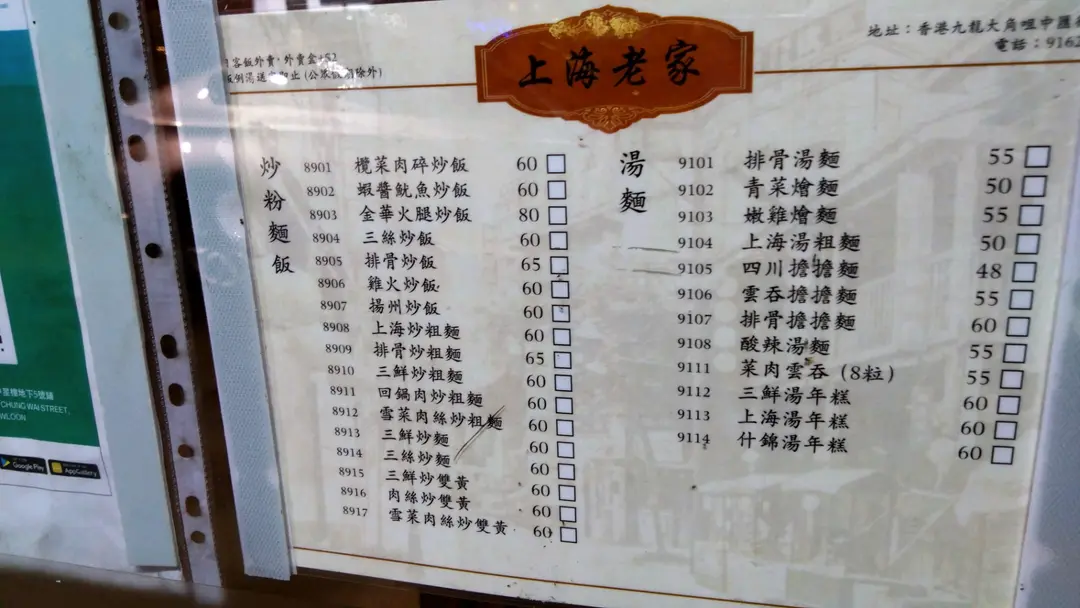 上海老家
地址：香港九龍大角咀中匯
電話：9162
客飯外賣 外賣盒
(公眾 除外)
炒粉麵飯
8901 欖菜肉碎炒飯 60
8902 蝦醬魷魚炒飯 60
8903 金華火腿炒飯 80
8904 三絲炒飯 60
8905 排骨炒飯 65
8906 雞火炒飯 60
8907 揚州炒飯 60
8908 上海炒粗麵 60
8909 排骨炒粗麵 65
8910 三鮮炒粗麵 60
8911 回鍋肉炒粗麵 60
8912 雪菜肉絲炒粗麵 60
8913 三鮮炒麵 60
8914 三絲炒麵 60
8915 三鮮炒雙黃 60
8916 肉絲炒雙黃 60
8917 雪菜肉絲炒雙黃 60
湯麵
9101 排骨湯麵 55
9102 青菜燴麵 50
9103 嫩雞燴麵 55
9104 上海湯粗麵 50
9105 四川擔擔麵 48
9106 雲吞擔擔麵 55
9107 排骨擔擔麵 60
9108 酸辣湯麵 55
9111 菜肉雲吞（8粒） 55
9112 三鮮湯年糕 60
9113 上海湯年糕 60
9114 什錦湯年糕 60
地下5號舖
CHUNG WAI STREET,
WLOON
Google Play
AppGallery